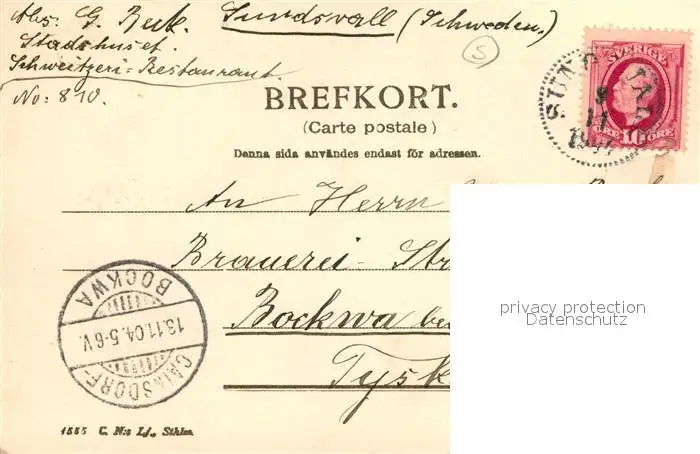 Abs. G. Beck. Sundsvall (Schweden.)
Stadshuset.
Schweitzeri-Restaurant.
No: 810.
S
SVERIGE
ÖRE 10 ÖRE
11
BREFKORT.
(Carte postale)
Denna sida användes endast för adressen.
An Herrn
Brauerei- Str
Bockwa be
Tysk
privacy protection
Datenschutz
CAINSDORF-
13.11.04.5-6V.
BOCKWA
1555 C. N:s Lj., Sthlm.